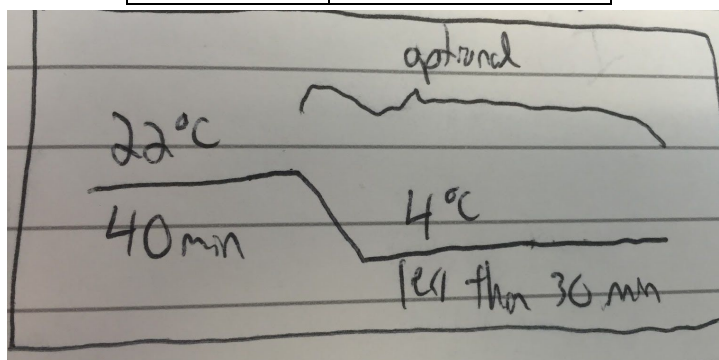 optional
22°C
40 min
4°C
less than 30 min